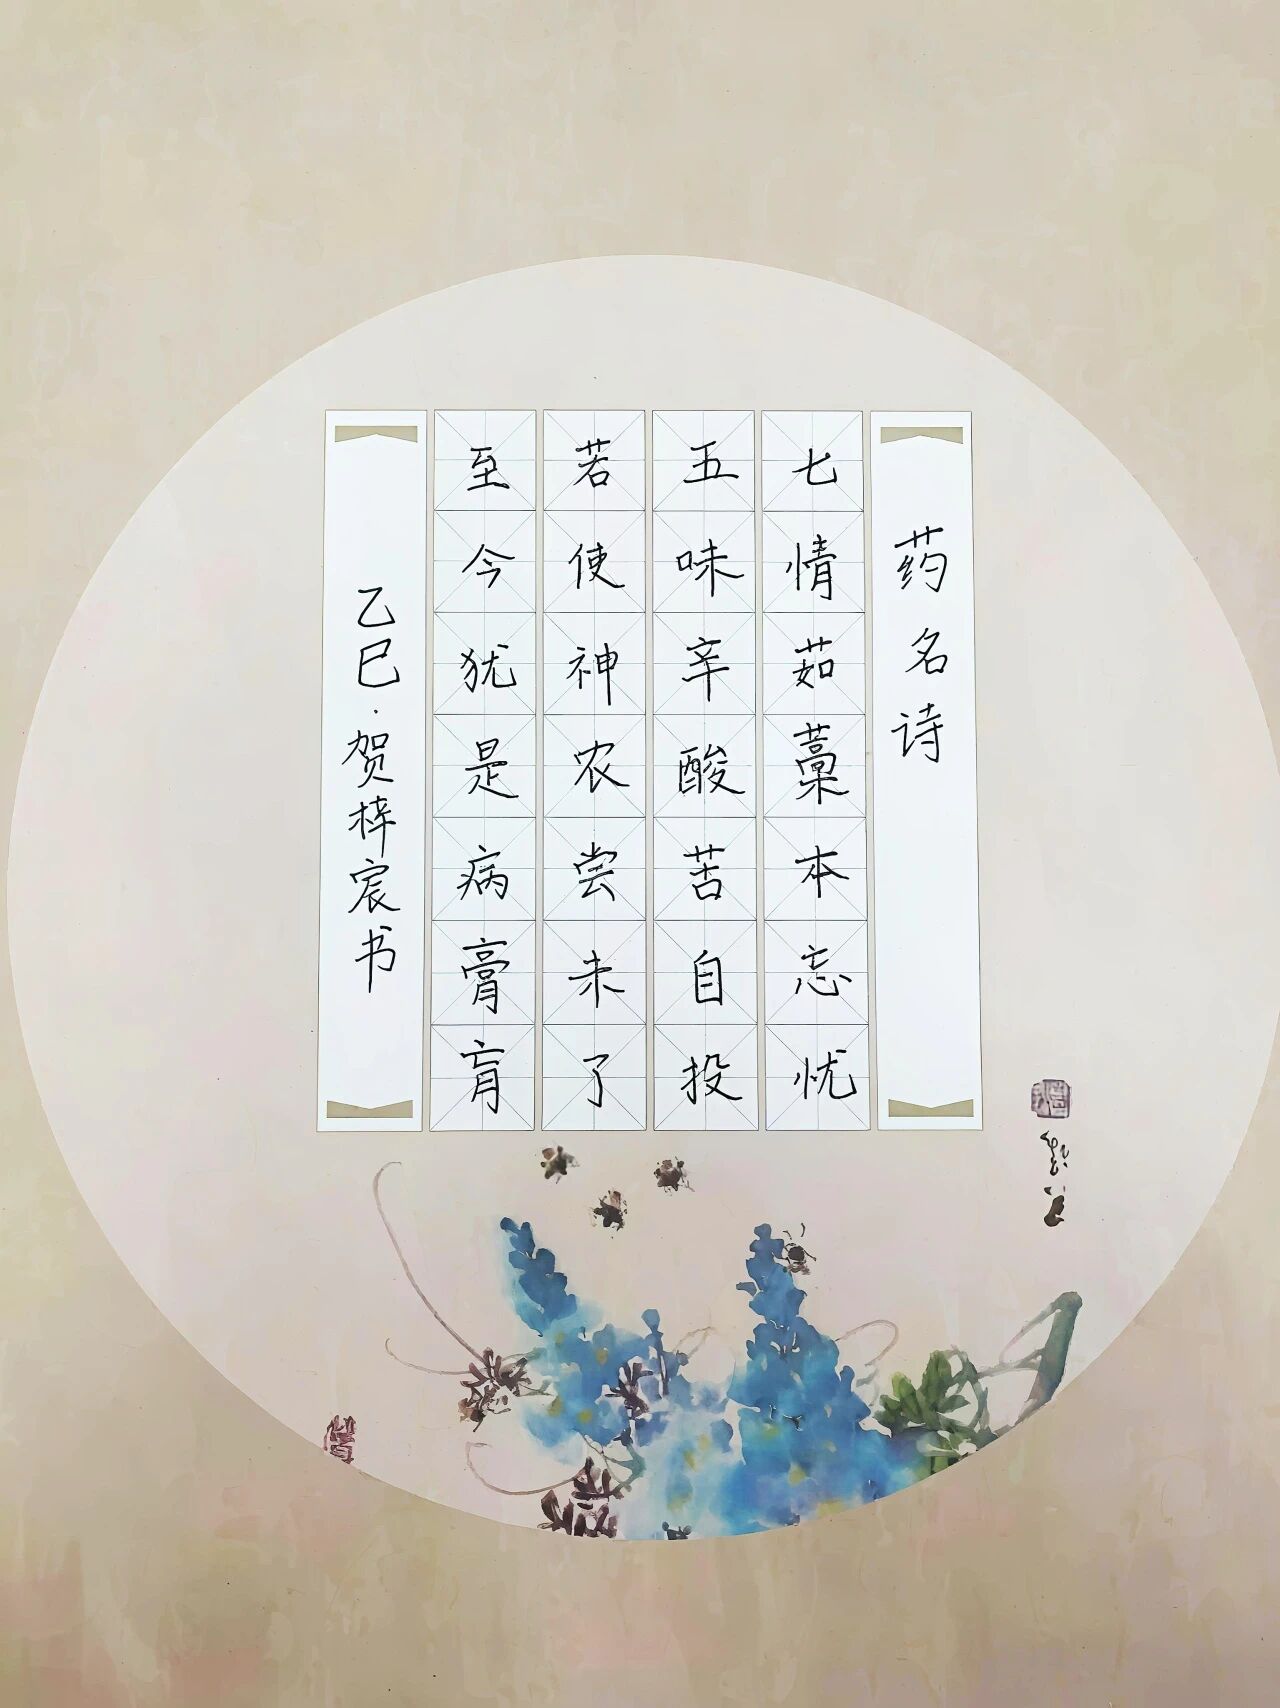 药名诗
七情茹藁本忘忧
五味辛酸苦自投
若使神农尝未了
至今犹是病膏肓
乙巳·贺梓宸书